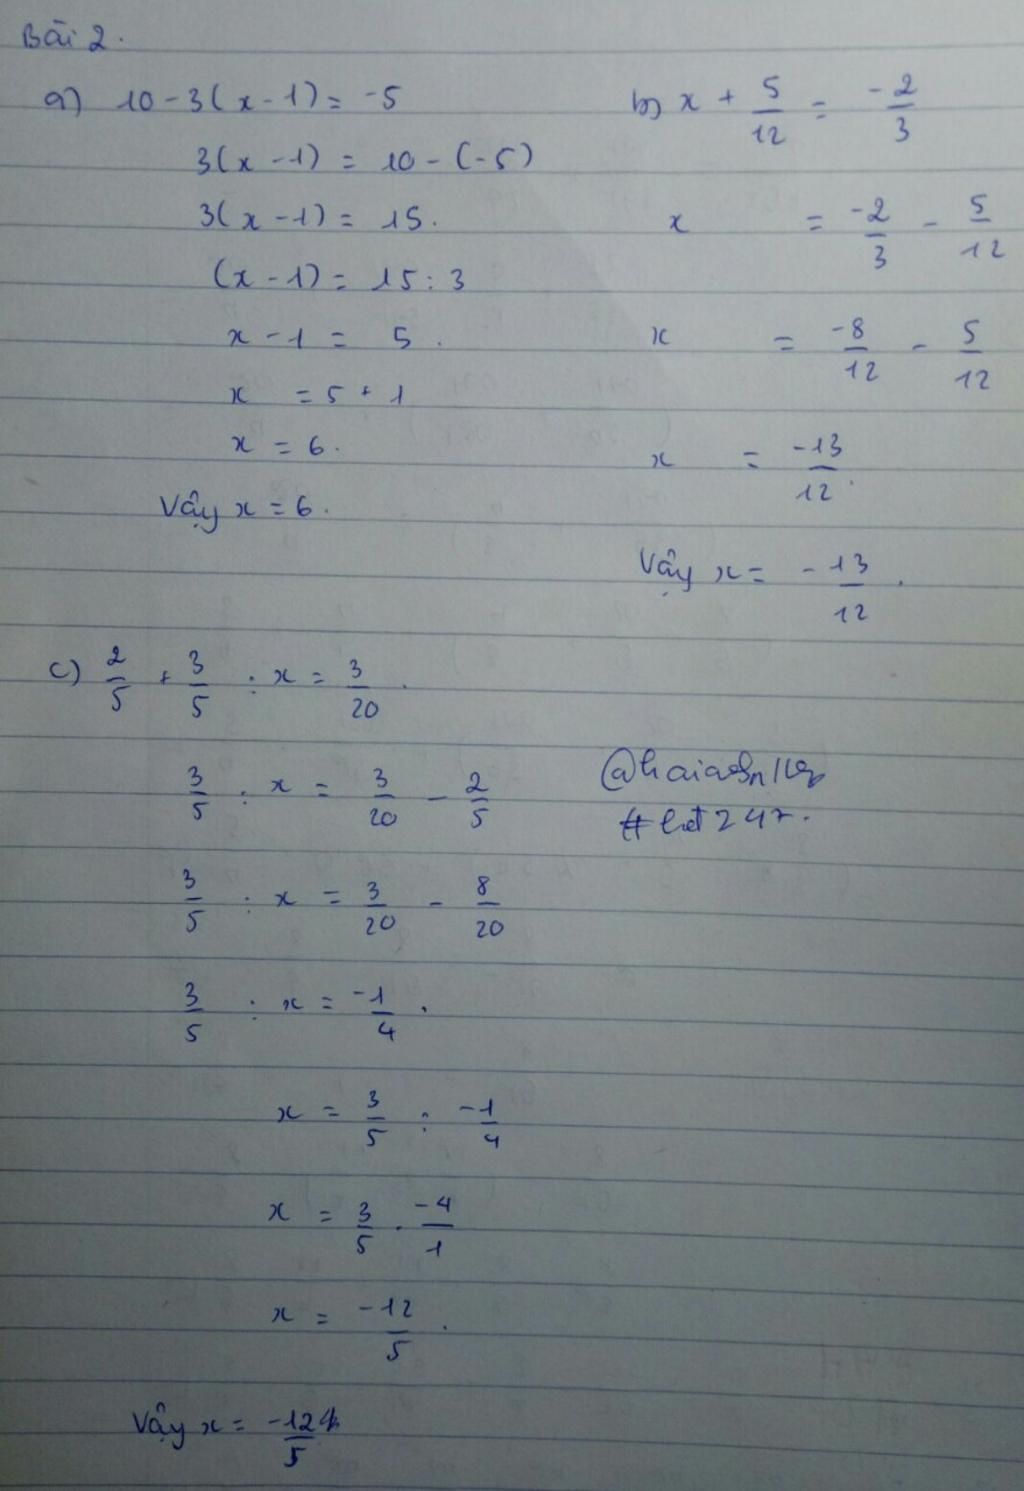 Bài 2.
a) 10 - 3(x - 1) = -5
3(x - 1) = 10 - (-5)
3(x - 1) = 15.
(x - 1) = 15 : 3
x - 1 = 5.
x = 5 + 1
x = 6.
Vậy x = 6.
b) x + 5/12 = -2/3
x = -2/3 - 5/12
x = -8/12 - 5/12
x = -13/12.
Vậy x = -13/12.
c) 2/5 + 3/5 : x = 3/20.
3/5 : x = 3/20 - 2/5
3/5 : x = 3/20 - 8/20
3/5 : x = -1/4.
x = 3/5 : -1/4
x = 3/5 . -4/1
x = -12/5.
Vậy x = -12/5
247.